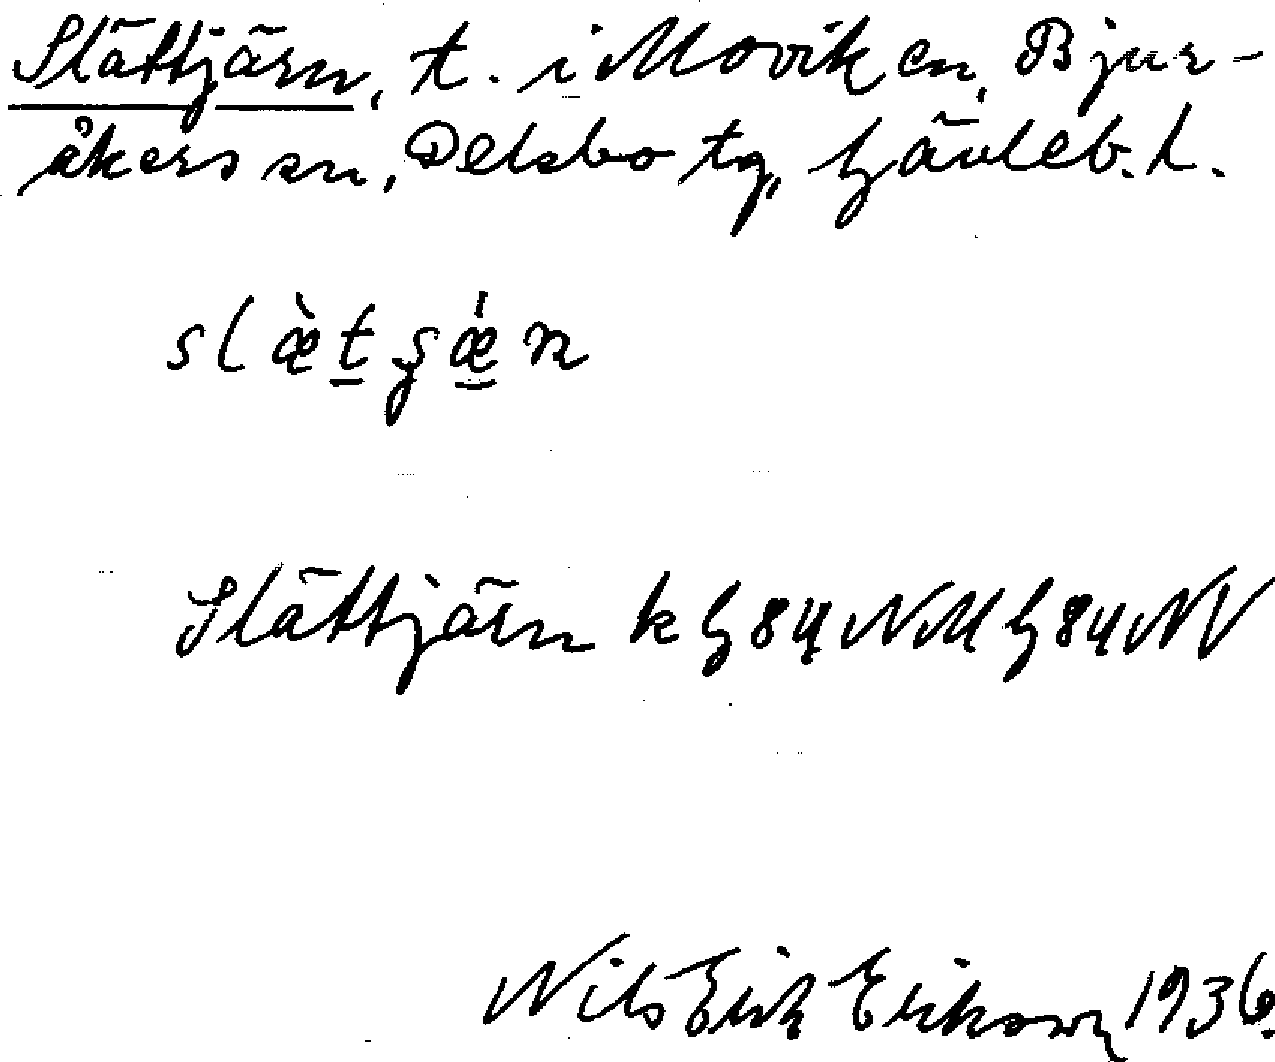 Slättjärn, t. i Moviken, Bjur-
åkers sn, Delsbo tg, Gävleb. l.
Slättjärn k G 84 NM G 84 NV
Nils Erik Erikson 1936.